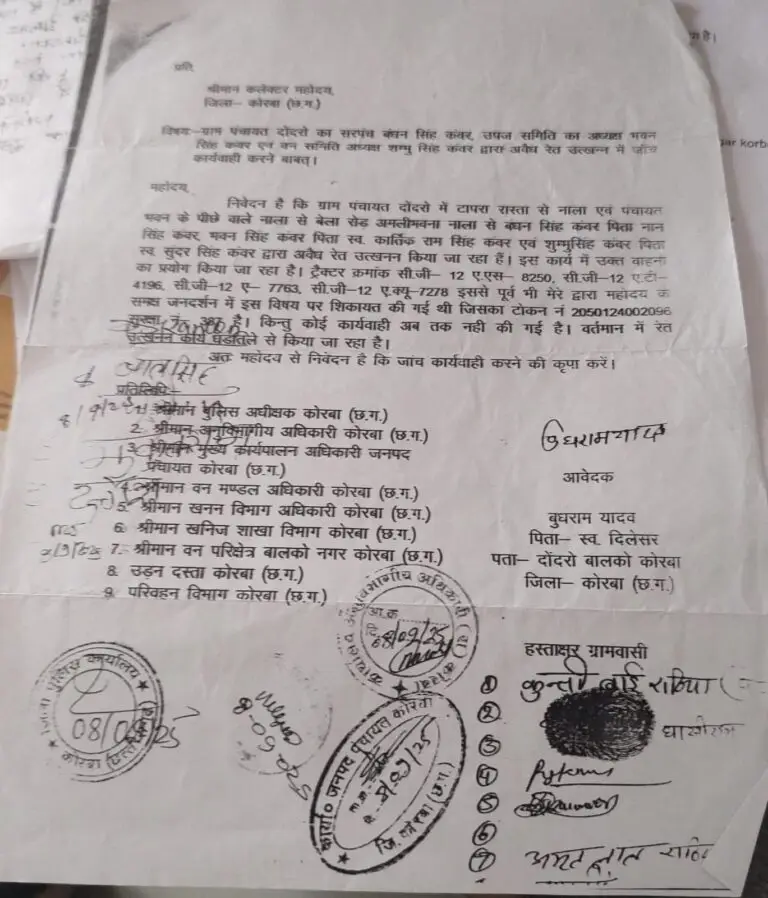 पा है।
प्रति,
श्रीमान कलेक्टर महोदय,
जिला– कोरबा (छ.ग.)
gar korb
विषय:–ग्राम पंचायत दोंदरो का सरपंच बंधन सिंह कंवर, उपज समिति का अध्यक्ष भवन
सिंह कंवर एवं वन समिति अध्यक्ष शम्भु सिंह कंवर द्वारा अवैध रेत उत्खनन में जाँच
कार्यवाही करने बाबत्।
महोदय,
निवेदन है कि ग्राम पंचायत दोंदरो में टापरा रास्ता से नाला एवं पंचायत
भवन के पीछे वाले नाला से बेला रोड़ अमलीभवना नाला से बंधन सिंह कंवर पिता नान
सिंह कंवर, भवन सिंह कंवर पिता स्व. कार्तिक राम सिंह कंवर एवं शुम्भुसिंह कंवर पिता
स्व. सुंदर सिंह कंवर द्वारा अवैध रेत उत्खनन किया जा रहा है। इस कार्य में उक्त वाहनो
का प्रयोग किया जा रहा है। ट्रैक्टर क्रमांक सी.जी– 12 ए.एस– 8250, सी.जी–12 ए.टी–
4196, सी.जी–12 ए– 7763, सी.जी–12 ए.क्यू–7278 इससे पूर्व भी मेरे द्वारा महोदय के
समक्ष जनदर्शन में इस विषय पर शिकायत की गई थी जिसका टोकन नं 2050124002096
है। किन्तु कोई कार्यवाही अब तक नही की गई है। वर्तमान में रेत
उत्खनन कार्य धड़तिले से किया जा रहा है।
अतः महोदय से निवेदन है कि जांच कार्यवाही करने की कृपा करें।
प्रतिलिपि:–
1. श्रीमान पुलिस अधीक्षक कोरबा (छ.ग.)
2. श्रीमान अनुविभागीय अधिकारी कोरबा (छ.ग.)
3. श्रीमान मुख्य कार्यपालन अधिकारी जनपद
पंचायत कोरबा (छ.ग.)
4. श्रीमान वन मण्डल अधिकारी कोरबा (छ.ग.)
5. श्रीमान खनन विभाग अधिकारी कोरबा (छ.ग.)
6. श्रीमान खनिज शाखा विभाग कोरबा (छ.ग.)
7. श्रीमान वन परिक्षेत्र बालको नगर कोरबा (छ.ग.)
8. उड़न दस्ता कोरबा (छ.ग.)
9. परिवहन विभाग कोरबा (छ.ग.)
आवेदक
बुधराम यादव
पिता– स्व. दिलेसर
पता– दोंदरो बालको कोरबा
जिला– कोरबा (छ.ग.)
हस्ताक्षर ग्रामवासी
① कुन्ती बाई
②
③
④
⑤
⑥
⑦
जिला पुलिस कार्यालय
08/09/25
कार्या० जनपद पंचायत कोरबा
जि. कोरबा (छ.ग.)